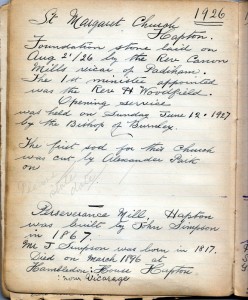 1926
St Margaret Church
Hapton.
Foundation stone laid on
Aug 2'/26 by the Rev. Canon
Mills vicar of Padiham.
The 1st minister appointed
was the Rev H Woodfield.
Opening service
was held on Sunday June 12 1927
by the Bishop of Burnley.
The first sod for this Church
was cut by Alexander Park
on
date
Perseverance Mill, Hapton
was built by John Simpson
in 1867.
Mr J Simpson was born in 1817.
Died on March 1896 at
Hambledon House Hapton
now Vicarage